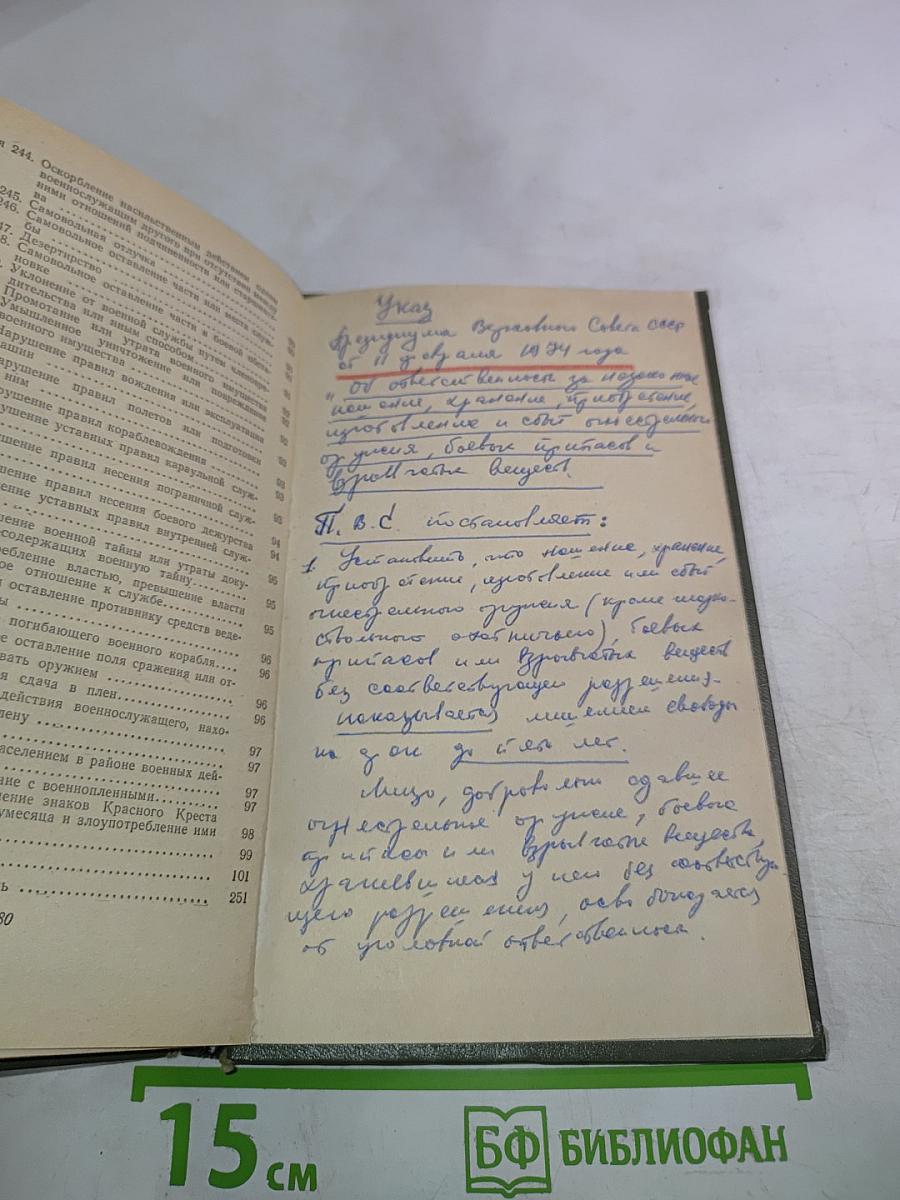 я 244. Оскорбление насильственным действием одним
военнослужащим другого при отсутствии между
ними отношений подчиненности или старшинст-
ва
245. Самовольная отлучка
246. Самовольное оставление части или места служ-
бы
47. Дезертирство
8. Самовольное оставление части в боевой обста-
новке
Уклонение от военной службы путем членовре-
дительства или иным способом
Промотание или утрата военного имущества
Умышленное уничтожение или повреждение
военного имущества
Нарушение правил вождения или эксплуатации
машин
арушение правил полетов или подготовки
ним
рушение правил кораблевождения
рушение уставных правил караульной служ-
ушение правил несения пограничной служ-
шение правил несения боевого дежурства
ение уставных правил внутренней служ-
шение военной тайны или утраты доку-
содержащих военную тайну
ребление властью, превышение власти
ое отношение к службе
оставление противнику средств веде-
ы
погибающего военного корабля
е оставление поля сражения или от-
вать оружием
я сдача в плен
действия военнослужащего, нахо-
лену
аселением в районе военных дей-
ние с военнопленными
ение знаков Красного Креста
умесяца и злоупотребление ими
ь
92
93
93
94
94
95
95
95
96
96
96
96
97
97
97
97
98
99
101
251
80
Указ
Президиума Верховного Совета СССР
от 11 февраля 1974 года
"Об ответственности за незаконное
ношение, хранение, приобретение,
изготовление и сбыт огнестрельного
оружия, боевых припасов и
взрывчатых веществ.
П. В. С. постановляет:
1 Установить, что ношение, хранение,
приобретение, изготовление или сбыт
огнестрельного оружия (кроме гладко-
ствольного охотничьего), боевых
припасов или взрывчатых веществ
без соответствующего разрешения -
наказывается лишением свободы
на срок до пяти лет.
Лицо, добровольно сдавшее
огнестрельное оружие, боевые
припасы или взрывчатые вещества,
хранившиеся у него без соответствую-
щего разрешения, освобождается
от уголовной ответственности.
15 см
БФ БИБЛИОФАН